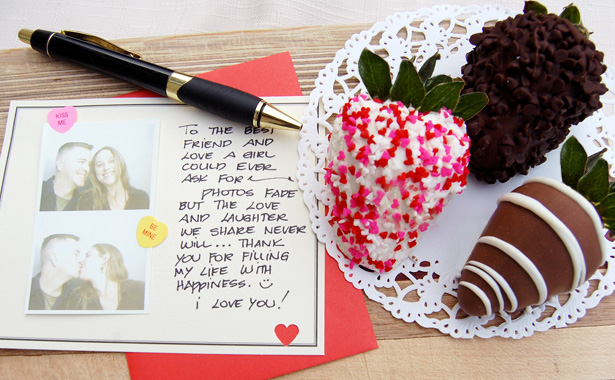 KISS
ME
BE
MINE
TO THE BEST
FRIEND AND
LOVE A GIRL
COULD EVER
ASK FOR
PHOTOS FADE
BUT THE LOVE
AND LAUGHTER
WE SHARE NEVER
WILL... THANK
YOU FOR FILLING
MY LIFE WITH
HAPPINESS. ☺
I LOVE YOU!